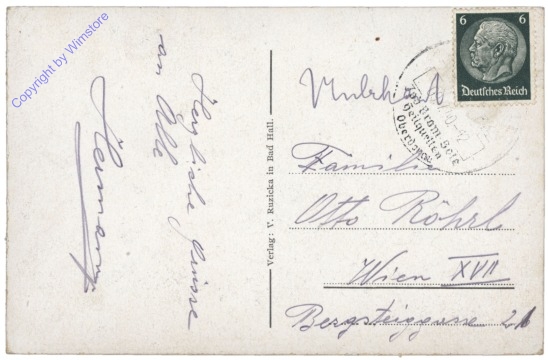 Copyright by Wimstore
Herzliche Grüsse
an Alle
Hermann
Verlag: V. Ruzicka in Bad Hall.
6 6
Deutsches Reich
Jod Brom-Sole
Heilquellen
Oberdonau
Familie
Otto Röhrl
Wien XVII
Bergsteiggasse